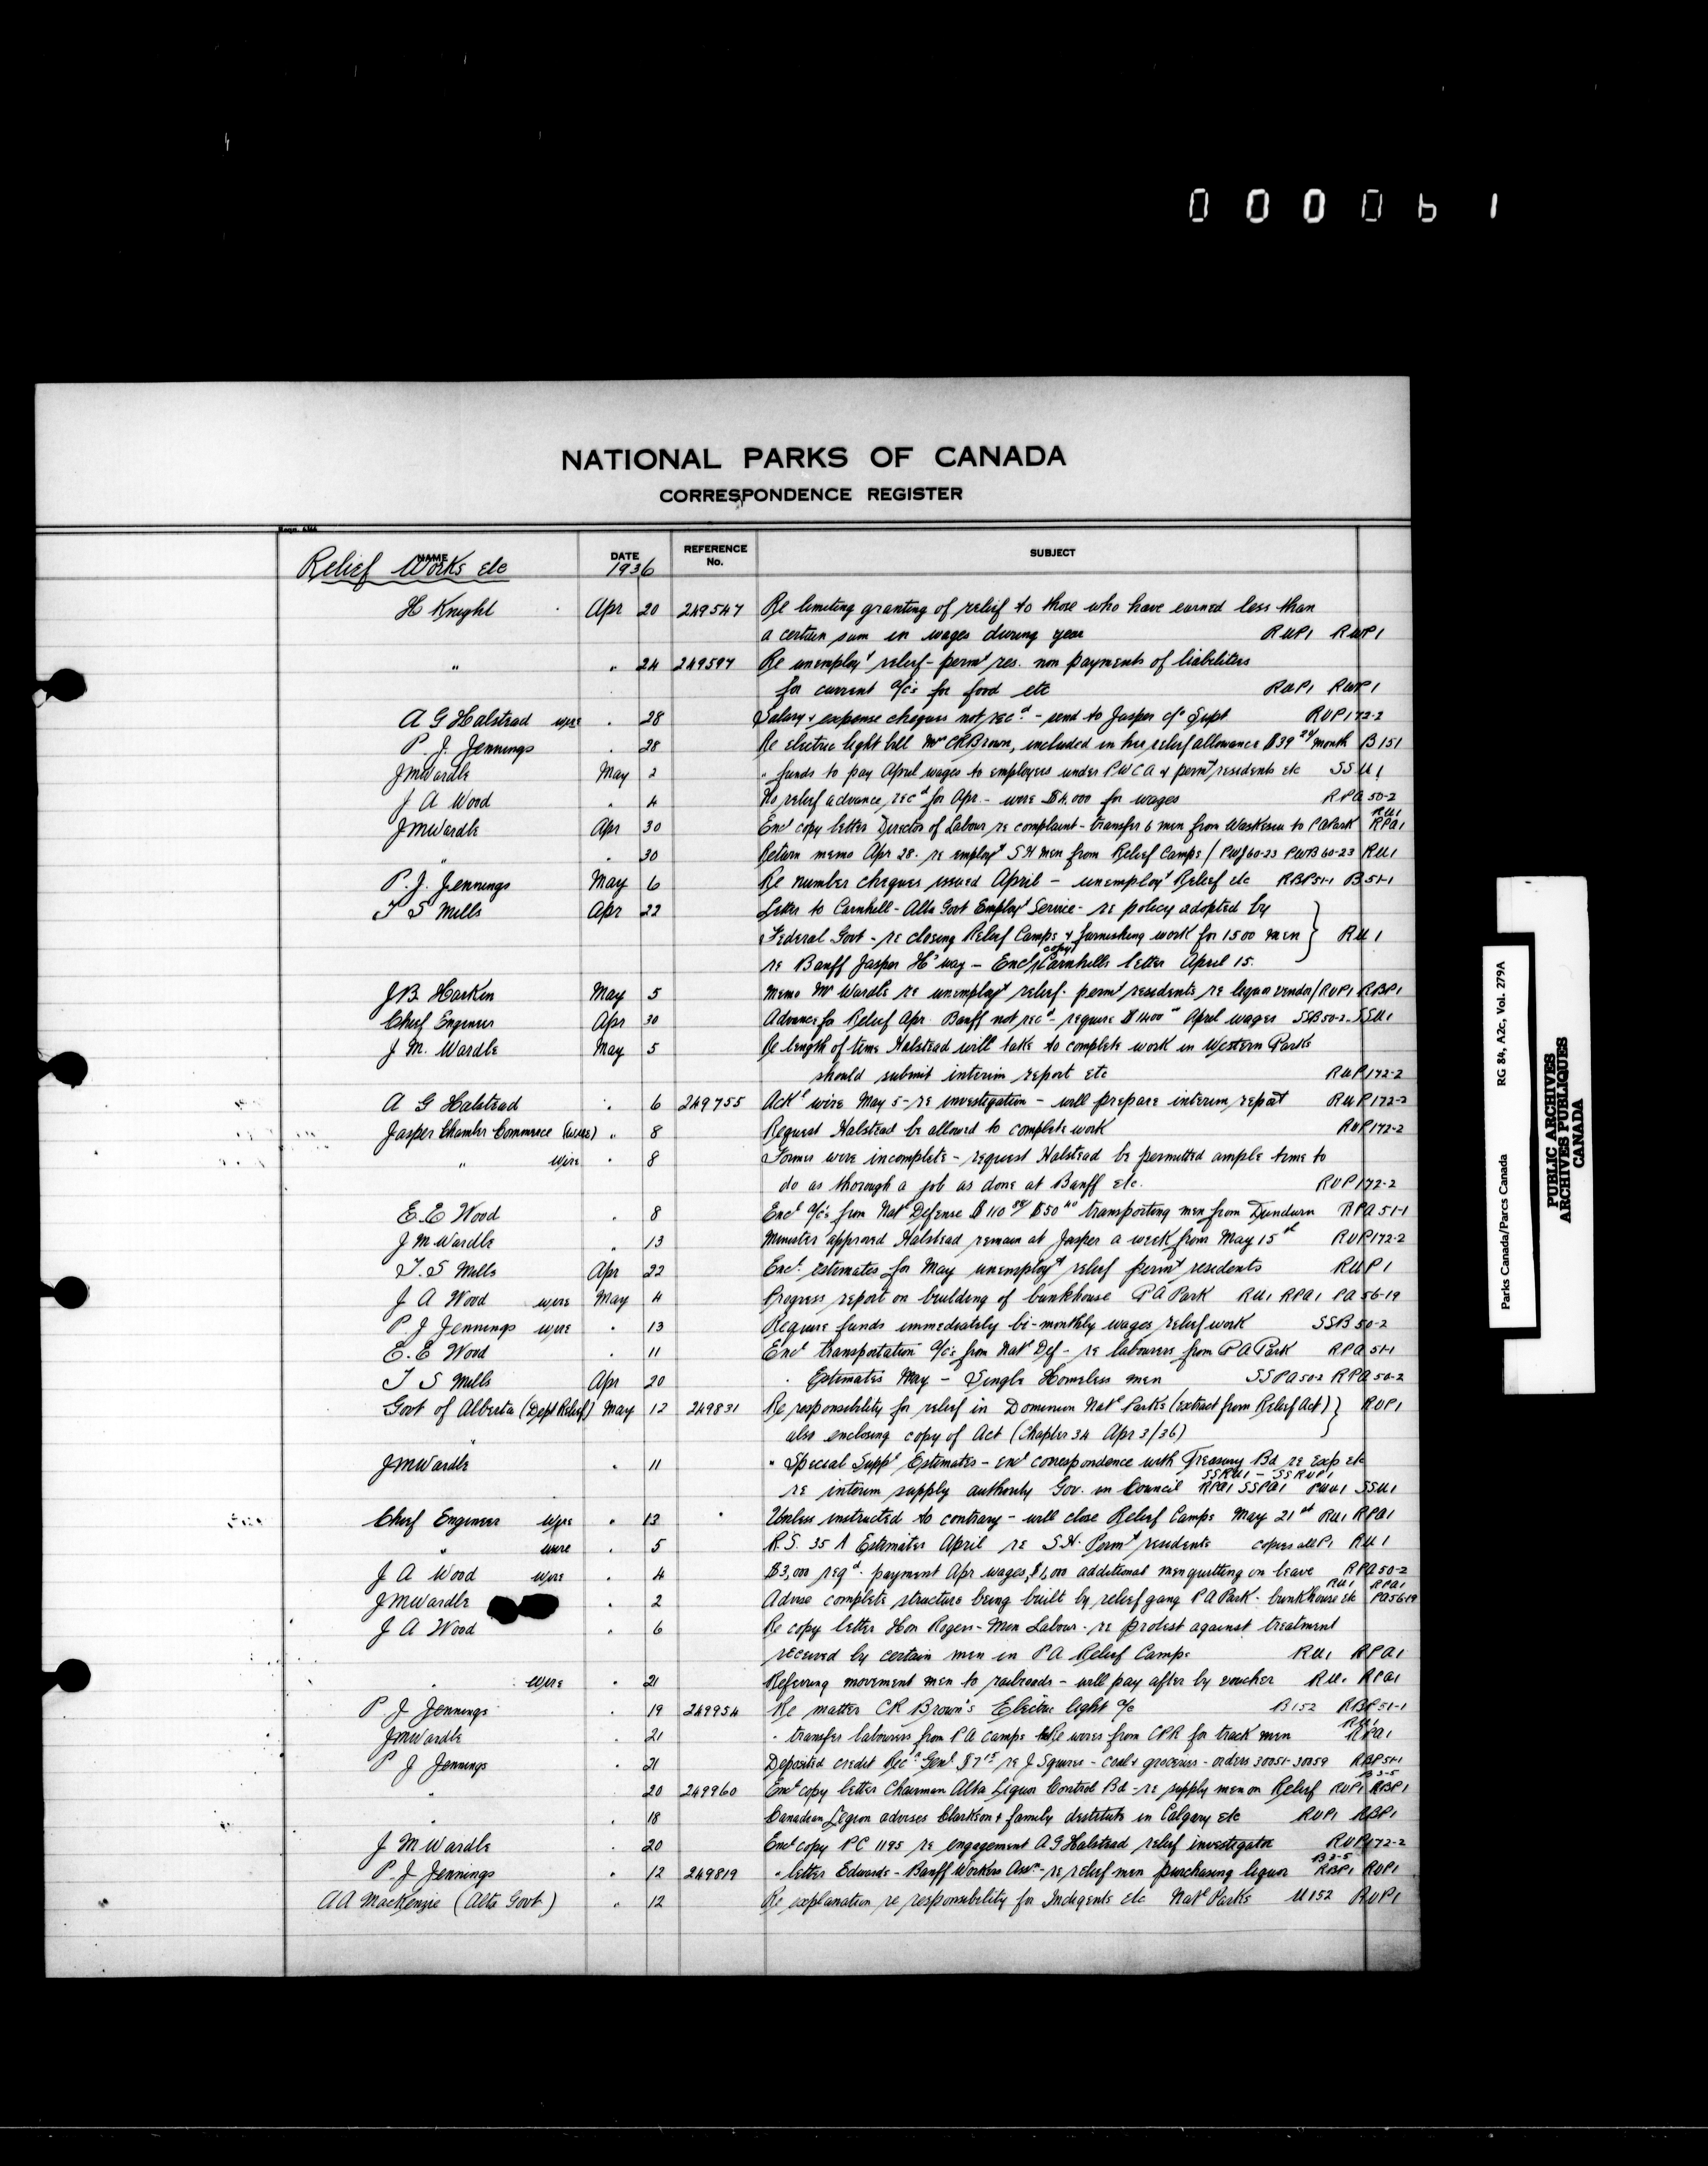 000061
NATIONAL PARKS OF CANADA
CORRESPONDENCE REGISTER
NAME DATE REFERENCE No. SUBJECT
Relief Works etc 1936
H Knight Apr 20 249547 Re limiting granting of relief to those who have earned less than
a certain sum in wages during year RUP1 RWP1
" " 24 249597 Re unemploy't relief - perm't res. non payments of liabilities
for current a/cs for food etc RUP1 RWP1
A G Halstead wire " 28 Salary & expense cheques not rec'd - send to Jasper c/o Supt RUP172-2
P. J. Jennings " 28 Re electric light bill Mr CR Brown, included in her relief allowance $39 24/ month B151
JMWardle May 2 " funds to pay April wages to employees under PWCA & perm't residents etc SSU1
J A Wood " 4 No relief advance rec'd for Apr. - wire $4,000 for wages RPA50-2
JMWardle Apr 30 Enc' copy letter Director of Labour re complaint - transfer 6 men from Waskesiu to PA Park RU1 RPA1
" " 30 Return memo Apr 28. re employ't SH men from Relief Camps / PWJ60-23 PWB60-23 RU1
P. J. Jennings May 6 Re number cheques issued April - unemploy't Relief etc RBP51-1 B51-1
T S Mills Apr 22 Letter to Carnhill - Alta Govt Employ't Service - re policy adopted by
Federal Govt - re closing Relief Camps & furnishing work for 1500 men RU1
re Banff Jasper H'way - Enc' copy Carnhills letter April 15.
J.B. Harkin May 5 Memo Mr Wardle re unemploy't relief - perm't residents re liquor vendor / RUP1 RBP1
Chief Engineer Apr 30 Advance for Relief Apr. Banff not rec'd - require $1400 April wages SSB50-2 - SSU1
J M. Wardle May 5 Re length of time Halstead will take to complete work in Western Parks
should submit interim report etc RUP172-2
A G Halstead " 6 249755 Ack' wire May 5 - re investigation - will prepare interim report RUP172-2
Jasper Chamber Commerce (wire) " 8 Request Halstead be allowed to complete work RUP172-2
" wire " 8 Former wire incomplete - request Halstead be permitted ample time to
do as thorough a job as done at Banff etc. RUP172-2
E. E Wood " 8 Enc' a/cs from Nat' Defense $110 $50 40 transporting men from Dundurn RPA51-1
J M Wardle " 13 Minister approved Halstead remain at Jasper a week from May 15th RUP172-2
T. S Mills Apr 22 Enc'. estimates for May unemploy't relief perm't residents RUP1
J A Wood wire May 4 Progress report on building of bunkhouse PA Park RU1 RPA1 PA56-19
P J Jennings wire " 13 Require funds immediately bi-monthly wages relief work SSB50-2
E. E Wood " 11 Enc' transportation a/cs from Nat' Def - re labourers from PA Park RPA51-1
T S Mills Apr 20 " Estimates May - Single Homeless men SSPA50-2 RPA50-2
Govt of Alberta (Dept Relief) May 12 249831 Re responsibility for relief in Dominion Nat' Parks (extract from Relief Act) RUP1
also enclosing copy of Act (Chapter 34 Apr 3/36)
JMWardle " 11 " Special Supp' Estimates - enc' correspondence with Treasury Bd re exp etc
SSRU1 - SSRUP1
re interim supply authority Gov. in Council RPA1 SSPA1 SSU1
Chief Engineer wire " 13 Unless instructed to contrary - will close Relief Camps May 21st RU1 RPA1
" wire " 5 R.S. 35 A Estimates April re S.H. Perm't residents copies all P1 RU1
J A Wood wire " 4 $3,000 req'd. payment Apr wages, $1,000 additional men quitting on leave RPA50-2
JMWardle " 2 Advise complete structure being built by relief gang PA Park - bunkhouse etc RU1 RPA1 PA56-19
J A Wood " 6 Re copy letter Hon Rogers - Min Labour - re protest against treatment
received by certain men in PA Relief Camps RU1 RPA1
" wire " 21 Refering movement men to railroads - will pay after by voucher RU1 RPA1
P J Jennings " 19 249954 Re matter CR Brown's Electric light a/c B152 RBP51-1
JMWardle " 21 " transfer labourers from PA camps Re wires from CPR for track men RU1 RPA1
P J Jennings " 21 Deposited credit Rec' Gen'l $7 15 re J Squires - coal & groceries - orders 30051-30059 RBP51-1
" 20 249960 Enc' copy letter Chairman Alta Liquor Control Bd - re supply men on Relief RUP1 B3-5 RBP1
" 18 Canadian Legion advises Clarkson & family destitute in Calgary etc RUP1 RBP1
J M Wardle " 20 Enc' copy PC 1195 re engagement A G Halstead relief investigator RUP172-2
P. J Jennings " 12 249819 " letter Edwards - Banff Workers Assn - re relief men purchasing liquor B3-5 RBP1 RUP1
AA MacKenzie (Alta Govt) " 12 Re explanation re responsibility for Indigents etc Nat' Parks U152 RUP1
Parks Canada/Parcs Canada RG 84, A2c, Vol. 279A
PUBLIC ARCHIVES
ARCHIVES PUBLIQUES
CANADA